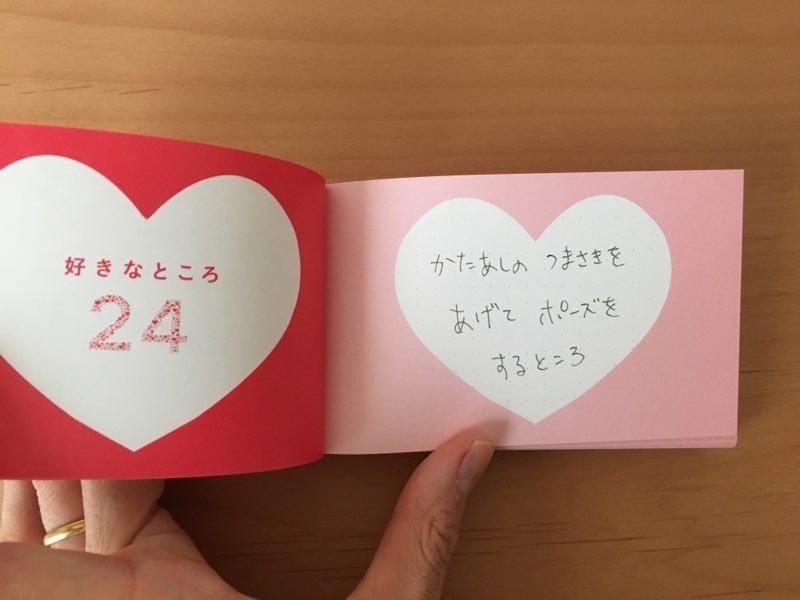 好きなところ
24
かたあしの つまさきを
あげて ポーズを
するところ